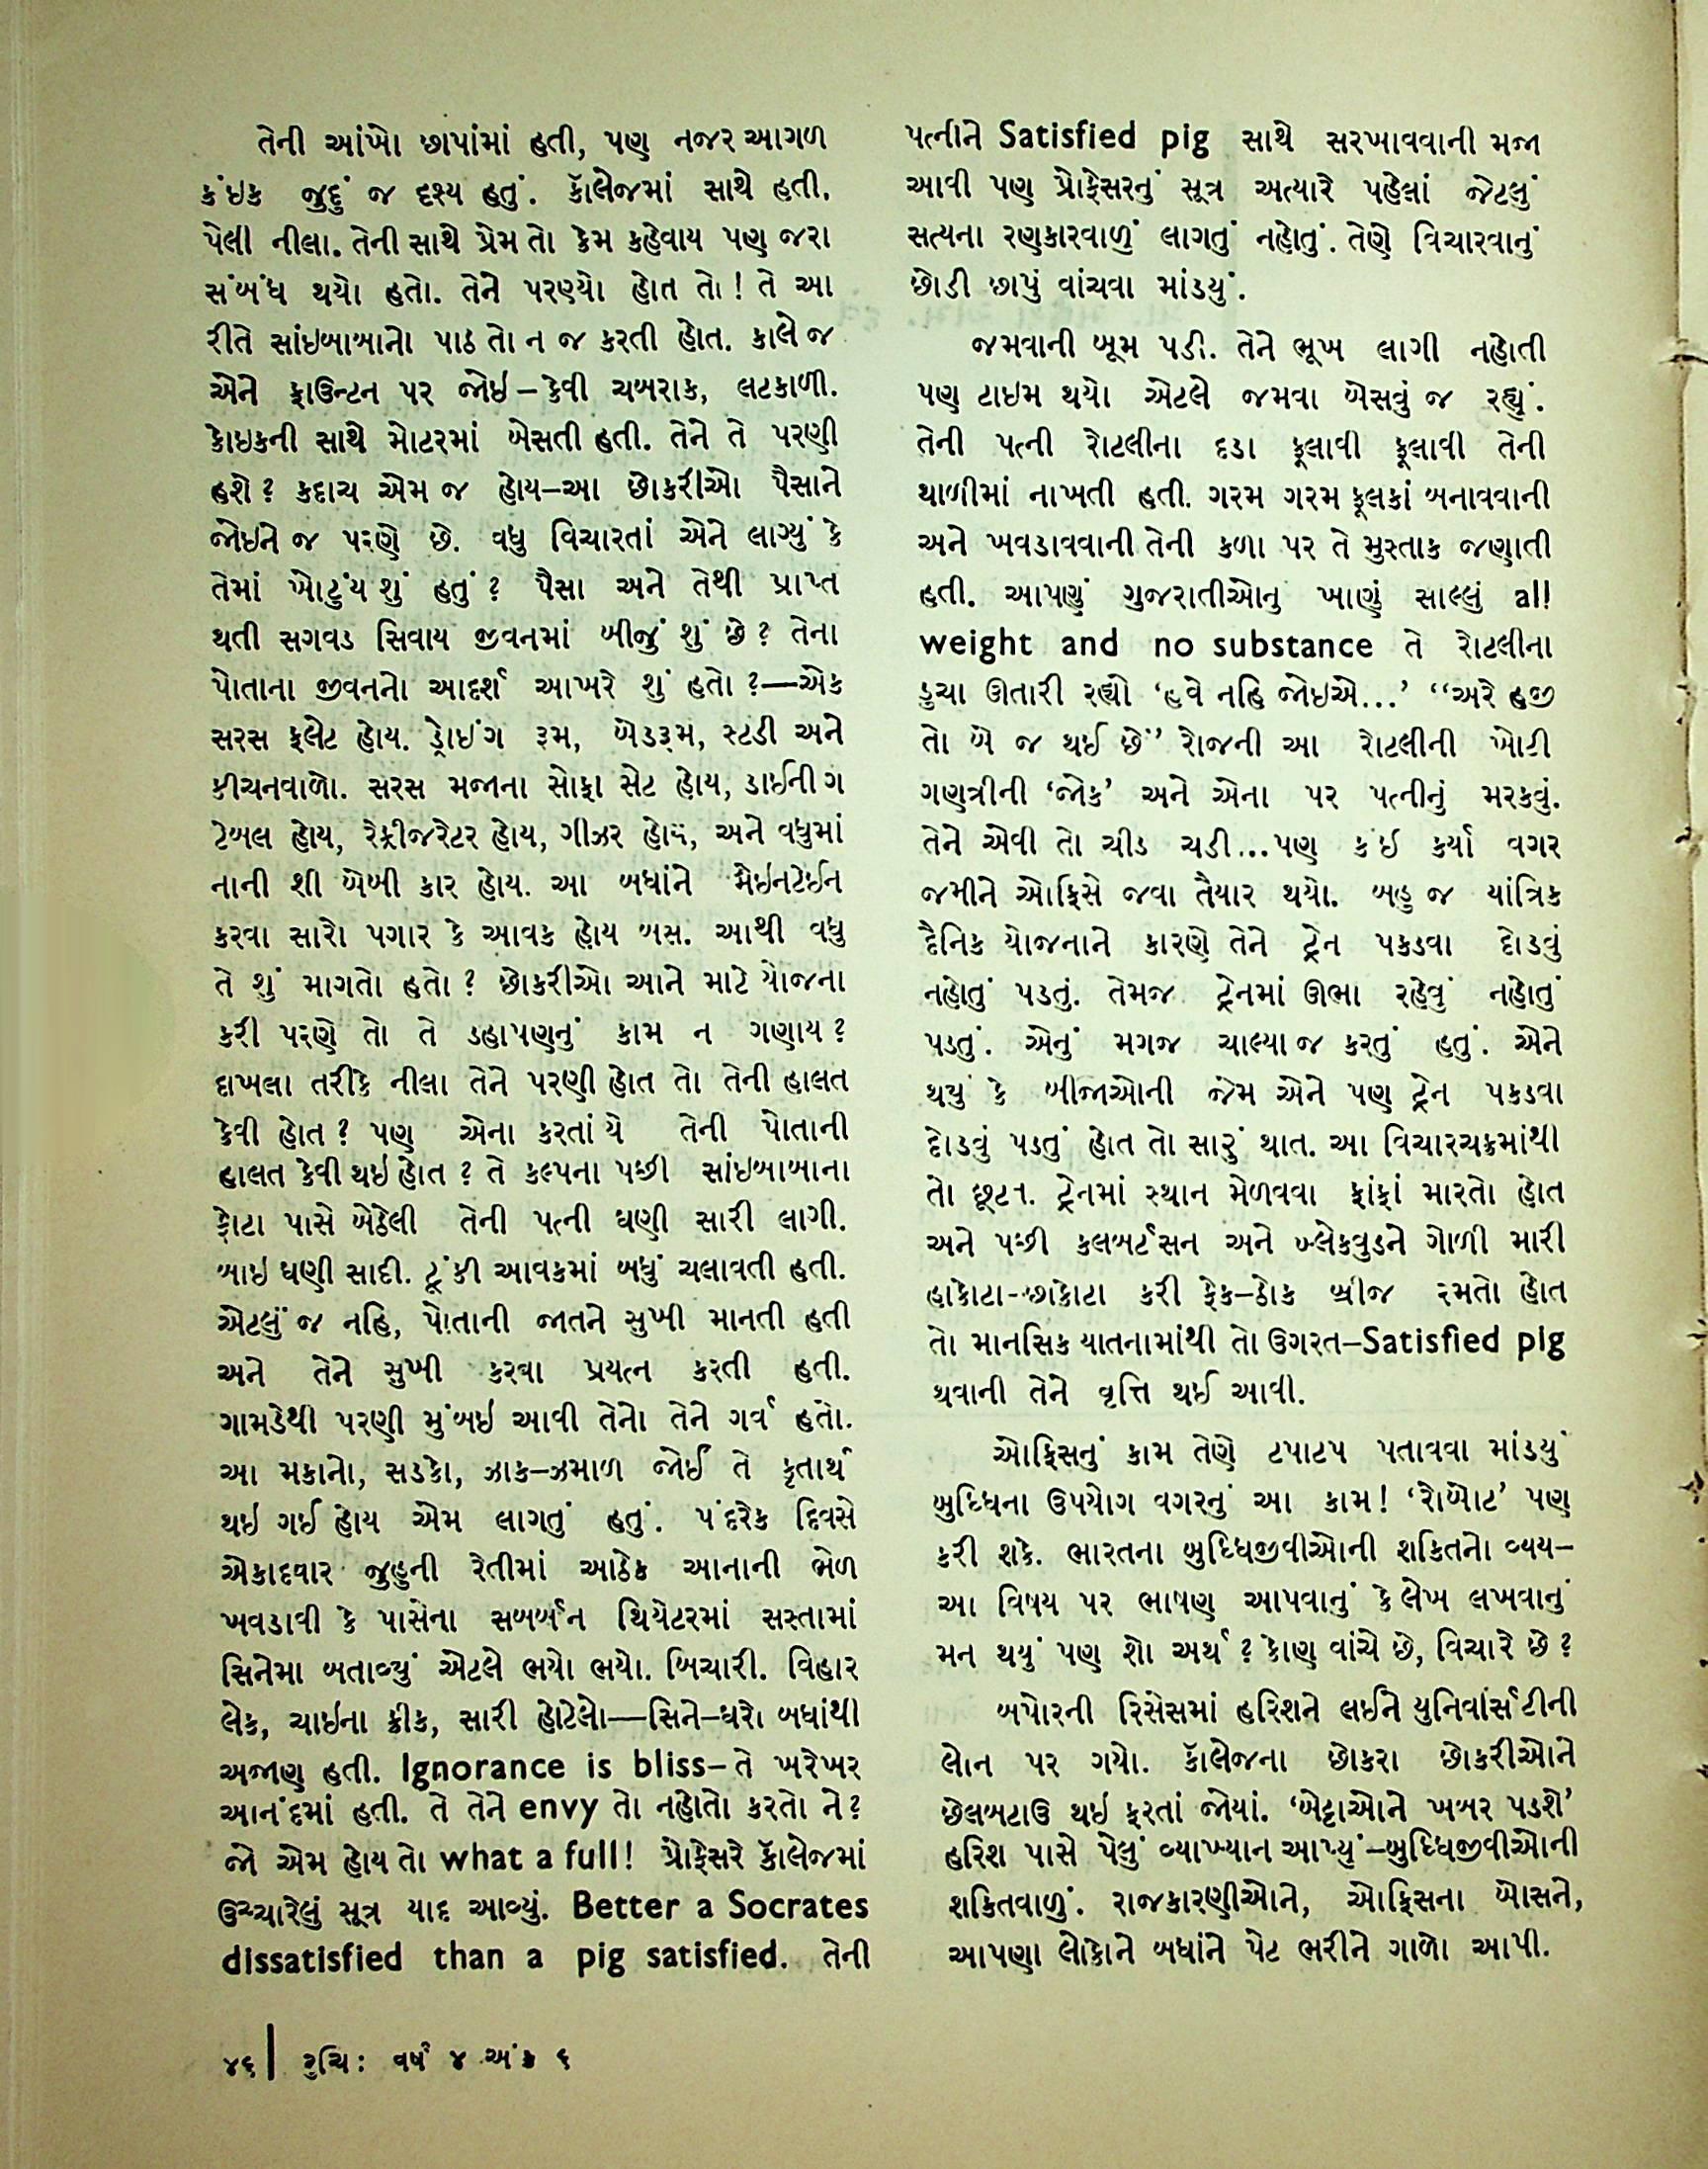 તેની આંખો છાપાંમાં હતી, પણ નજર આગળ
કંઇક જુદું જ દૃશ્ય હતું. કૉલેજમાં સાથે હતી,
પેલી નીલા. તેની સાથે પ્રેમ તો કેમ કહેવાય પણ જરા
સંબંધ થયો હતો. તેને પરણ્યો હોત તો! તે આ
રીતે સાંઇબાબાનો પાઠ તો ન જ કરતી હોત. કાલે જ
એને ફાઉન્ટન પર જોઇ–કેવી ચબરાક, લટકાળી.
કોઇકની સાથે મોટરમાં બેસતી હતી. તેને તે પરણી
હશે? કદાચ એમ જ હોય–આ છોકરીઓ પૈસાને
જોઇને જ પરણે છે. વધુ વિચારતાં એને લાગ્યું કે
તેમાં ખોટુંય શું હતું? પૈસા અને તેથી પ્રાપ્ત
થતી સગવડ સિવાય જીવનમાં બીજું શું છે? તેના
પોતાના જીવનનો આદર્શ આખરે શું હતો?—એક
સરસ ફ્લેટ હોય. ડ્રોઇંગ રૂમ, બેડરૂમ, સ્ટડી અને
કીચનવાળો. સરસ મજાના સોફા સેટ હોય, ડાઈનીગ
ટેબલ હોય, રેફ્રીજરેટર હોય, ગીઝર હોય, અને વધુમાં
નાની શી બેબી કાર હોય. આ બધાંને મેઇનટેઈન
કરવા સારો પગાર કે આવક હોય બસ. આથી વધુ
તે શું માગતો હતો? છોકરીઓ આને માટે યોજના
કરી પરણે તો તે ડહાપણનું કામ ન ગણાય?
દાખલા તરીકે નીલા તેને પરણી હોત તો તેની હાલત
કેવી હોત? પણ એના કરતાં યે તેની પોતાની
હાલત કેવી થઇ હોત? તે કલ્પના પછી સાંઇબાબાના
ફોટા પાસે બેઠેલી તેની પત્ની ઘણી સારી લાગી.
બાઇ ઘણી સાદી. ટૂંકી આવકમાં બધું ચલાવતી હતી.
એટલું જ નહિ, પોતાની જાતને સુખી માનતી હતી
અને તેને સુખી કરવા પ્રયત્ન કરતી હતી.
ગામડેથી પરણી મુંબઇ આવી તેનો તેને ગર્વ હતો.
આ મકાનો, સડકો, ઝાક–ઝમાળ જોઈ તે કૃતાર્થ
થઇ ગઈ હોય એમ લાગતું હતું. પંદરેક દિવસે
એકાદવાર જુહુની રેતીમાં આઠેક આનાની ભેળ
ખવડાવી કે પાસેના સબર્બન થિયેટરમાં સસ્તામાં
સિનેમા બતાવ્યું એટલે ભયો ભયો. બિચારી. વિહાર
લેક, ચાઇના ક્રીક, સારી હોટેલો—સિને–ઘરો બધાંથી
અજાણ હતી. Ignorance is bliss–તે ખરેખર
આનંદમાં હતી. તે તેને envy તો નહોતો કરતો ને?
જો એમ હોય તો what a full! પ્રોફેસરે કૉલેજમાં
ઉચ્ચારેલું સૂત્ર યાદ આવ્યું. Better a Socrates
dissatisfied than a pig satisfied. તેની
પત્નીને Satisfied pig સાથે સરખાવવાની મજા
આવી પણ પ્રોફેસરનું સૂત્ર અત્યારે પહેલાં જેટલું
સત્યના રણકારવાળું લાગતું નહોતું. તેણે વિચારવાનું
છોડી છાપું વાંચવા માંડયું.
જમવાની બૂમ પડી. તેને ભૂખ લાગી નહોતી
પણ ટાઇમ થયો એટલે જમવા બેસવું જ રહ્યું.
તેની પત્ની રોટલીના દડા ફૂલાવી ફૂલાવી તેની
થાળીમાં નાખતી હતી. ગરમ ગરમ ફૂલકાં બનાવવાની
અને ખવડાવવાની તેની કળા પર તે મુસ્તાક જણાતી
હતી. આપણું ગુજરાતીઓનુ ખાણું સાલ્લું all
weight and no substance તે રોટલીના
ડુચા ઊતારી રહ્યો ‘હવે નહિ જોઇએ...’ “અરે હજી
તો બે જ થઈ છે” રોજની આ રોટલીની ખોટી
ગણત્રીની ‘જોક’ અને એના પર પત્નીનું મરકવું.
તેને એવી તો ચીડ ચડી...પણ કંઈ કર્યા વગર
જમીને ઓફિસે જવા તૈયાર થયો. બહુ જ યાંત્રિક
દૈનિક યોજનાને કારણે તેને ટ્રેન પકડવા દોડવું
નહોતું પડતું. તેમજ ટ્રેનમાં ઊભા રહેવું નહોતું
પડતું. એનું મગજ ચાલ્યા જ કરતું હતું. એને
થયું કે બીજાઓની જેમ એને પણ ટ્રેન પકડવા
દોડવું પડતું હોત તો સારું થાત. આ વિચારચક્રમાંથી
તો છૂટત. ટ્રેનમાં સ્થાન મેળવવા ફાંફાં મારતો હોત
અને પછી કલબર્ટસન અને બ્લેકવુડને ગોળી મારી
હાકોટા-છાકોટા કરી ફેક–ઠોક બ્રીજ રમતો હોત
તો માનસિક યાતનામાંથી તો ઉગરત–Satisfied pig
થવાની તેને વૃત્તિ થઈ આવી.
ઓફિસનું કામ તેણે ટપાટપ પતાવવા માંડયું
બુદ્ધિના ઉપયોગ વગરનું આ કામ! ‘રોબોટ’ પણ
કરી શકે. ભારતના બુદ્ધિજીવીઓની શકિતનો વ્યય–
આ વિષય પર ભાષણ આપવાનું કે લેખ લખવાનું
મન થયું પણ શો અર્થ? કોણ વાંચે છે, વિચારે છે?
બપોરની રિસેસમાં હરિશને લઈને યુનિવર્સિટીની
લોન પર ગયો. કૉલેજના છોકરા છોકરીઓને
છેલબટાઉ થઇ ફરતાં જોયાં. ‘બેટ્ટાઓને ખબર પડશે’
હરિશ પાસે પેલું વ્યાખ્યાન આપ્યું–બુદ્ધિજીવીઓની
શકિતવાળું. રાજકારણીઓને, ઓફિસના બોસને,
આપણા લોકોને બધાંને પેટ ભરીને ગાળો આપી.
૪૬ | રુચિ: વર્ષ ૪ અંક ૬